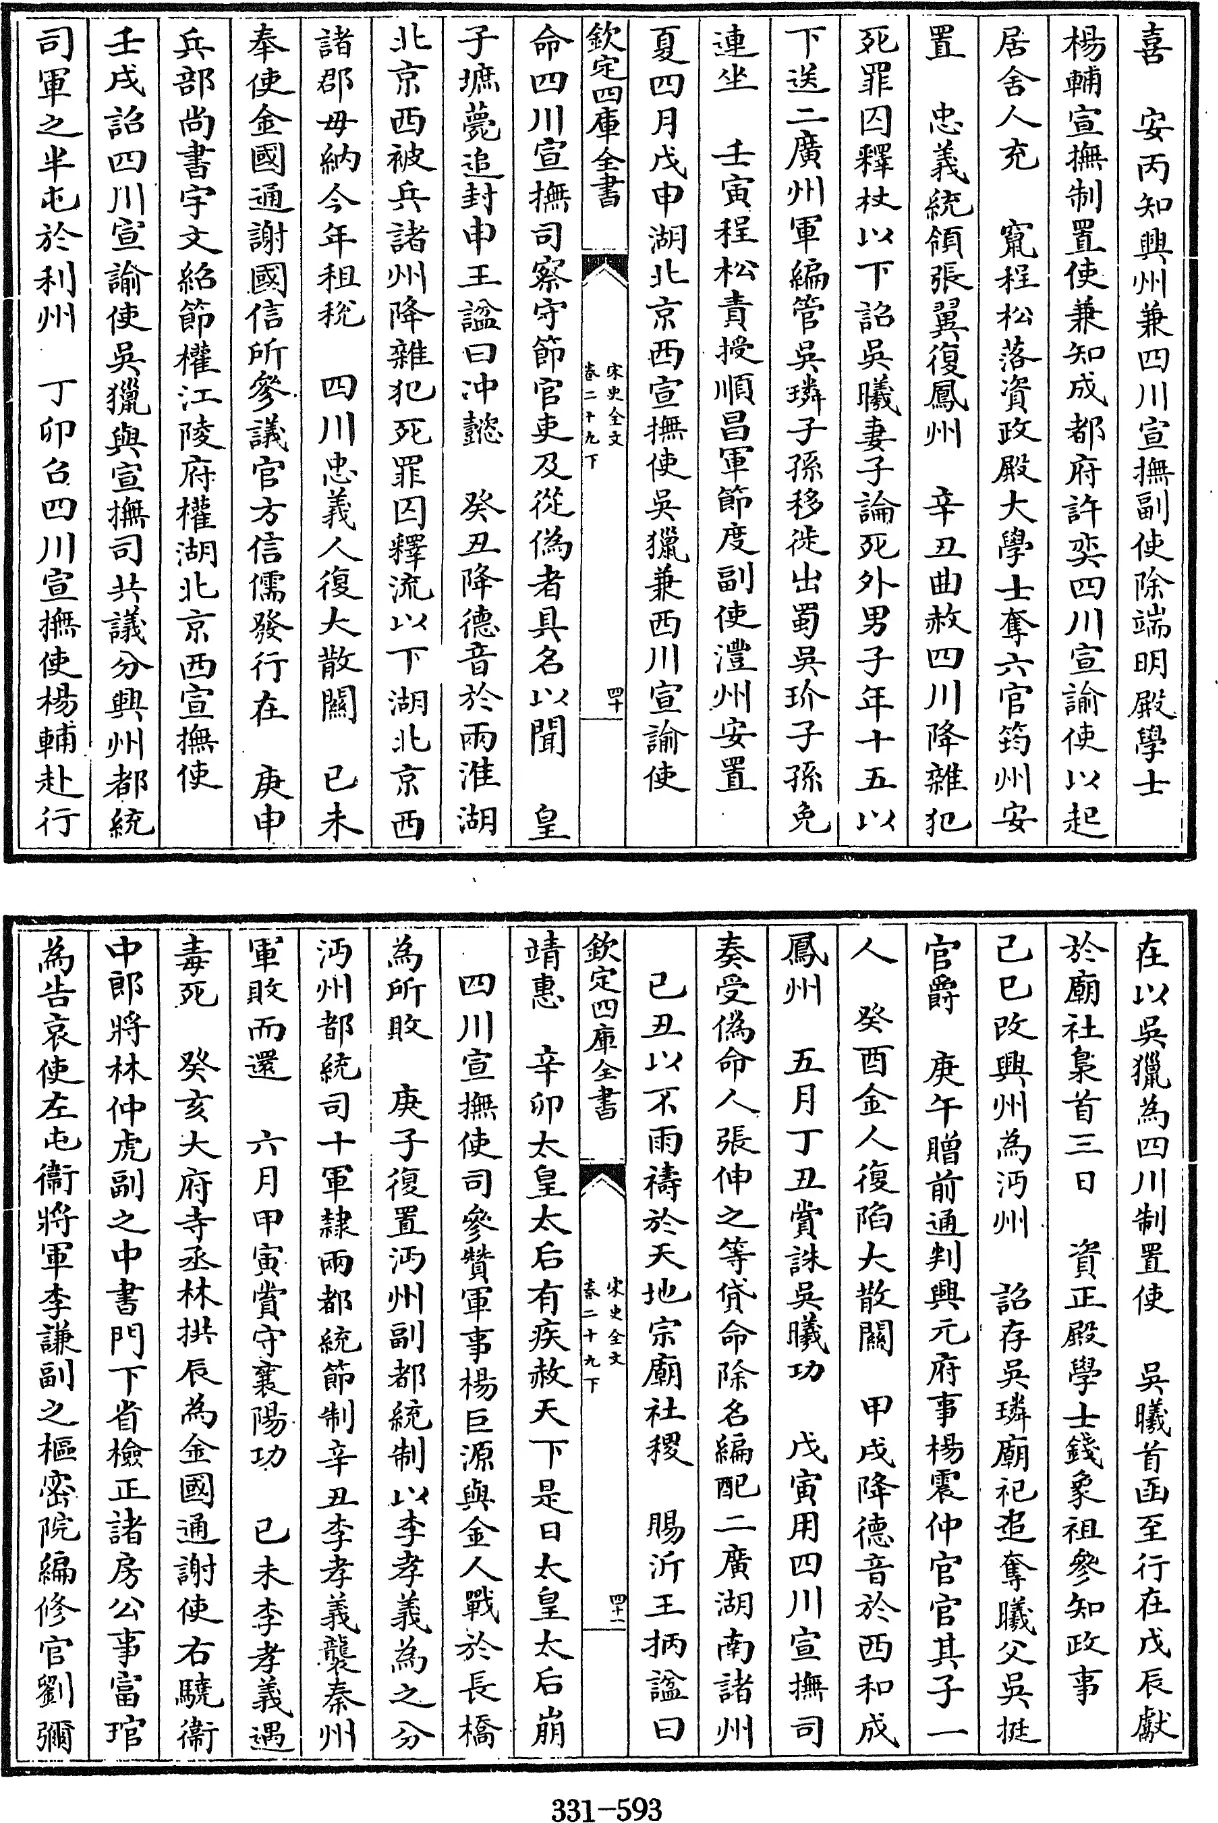 喜　安丙知興州兼四川宣撫副使除端明殿學士
楊輔宣撫制置使兼知成都府許奕四川宣諭使以起
居舍人充　竄程松落資政殿大學士奪六官筠州安
置　忠義統領張翼復鳳州　辛丑曲赦四川降雜犯
死罪囚釋杖以下詔吳曦妻子論死外男子年十五以
下送二廣州軍編管吳璘子孫移徙出蜀吳玠子孫免
連坐　壬寅程松責授順昌軍節度副使澧州安置
夏四月戊申湖北京西宣撫使吳獵兼西川宣諭使
欽定四庫全書　宋史全文　卷二十九下　四十
命四川宣撫司察守節官吏及從偽者具名以聞　皇
子壚薨追封申王諡曰冲懿　癸丑降德音於兩淮湖
北京西被兵諸州降雜犯死罪囚釋流以下湖北京西
諸郡毋納今年租稅　四川忠義人復大散關　已未
奉使金國通謝國信所參議官方信儒發行在　庚申
兵部尚書宇文紹節權江陵府權湖北京西宣撫使
壬戌詔四川宣諭使吳獵與宣撫司共議分興州都統
司軍之半屯於利州　丁卯召四川宣撫使楊輔赴行
在以吳獵為四川制置使　吳曦首函至行在戊辰獻
於廟社梟首三日　資正殿學士錢象祖參知政事
己巳改興州為沔州　詔存吳璘廟祀追奪曦父吳挺
官爵　庚午贈前通判興元府事楊震仲官官其子一
人　癸酉金人復陷大散關　甲戌降德音於西和成
鳳州　五月丁丑賞誅吳曦功　戊寅用四川宣撫司
奏受偽命人張伸之等貸命除名編配二廣湖南諸州
已丑以不雨禱於天地宗廟社稷　賜沂王抦諡曰
欽定四庫全書　宋史全文　卷二十九下　四十一
靖惠　辛卯太皇太后有疾赦天下是日太皇太后崩
四川宣撫使司參贊軍事楊巨源與金人戰於長橋
為所敗　庚子復置沔州副都統制以李孝義為之分
沔州都統司十軍隸兩都統節制辛丑李孝義襲秦州
軍敗而還　六月甲寅賞守襄陽功　已未李孝義遇
毒死　癸亥大府寺丞林拱辰為金國通謝使右驍衞
中郎將林仲虎副之中書門下省檢正諸房公事富琯
為告哀使左屯衞將軍李謙副之樞密院編修官劉彌
331-593